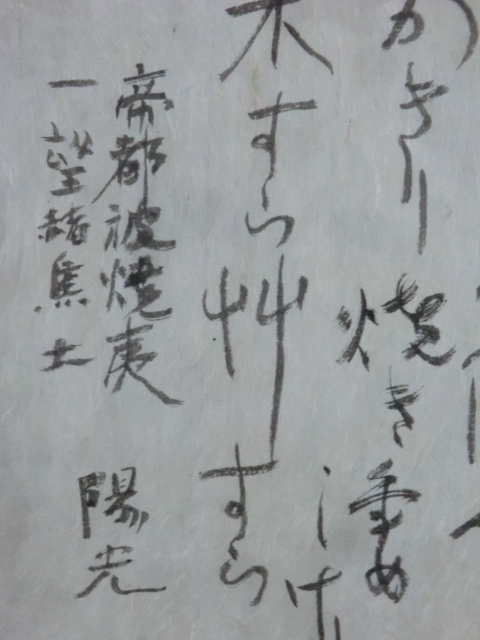 かきり焼き
しけ
木すら艸すら
帝都被焼夷
一望赭焦土
陽光